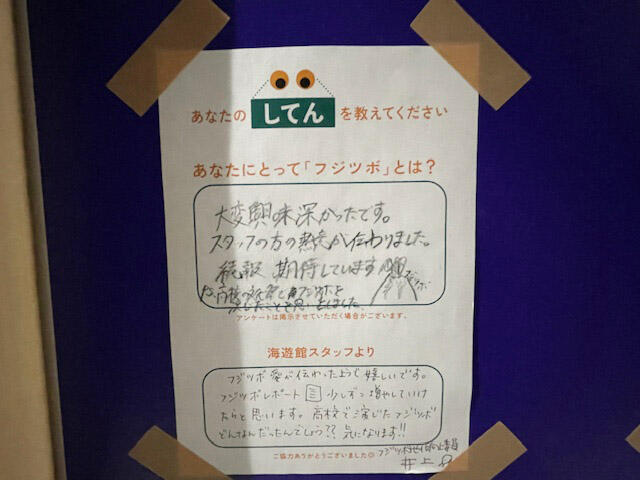 あなたの してん を教えてください
あなたにとって「フジツボ」とは？
大変興味深かったです。
スタッフの方の熱意が伝わりました。
続報 期待しています
フジツボ
フジツボを
演じたことを思い出しました。
アンケートは掲示させていただく場合がございます。
海遊館スタッフより
フジツボ愛が伝わったようで嬉しいです。
フジツボレポート 少しずつ増やしていけ
たらと思います。高校で演じたフジツボ
どんなんだったんでしょう?? 気になります!!
ご協力ありがとうございました◎
井上